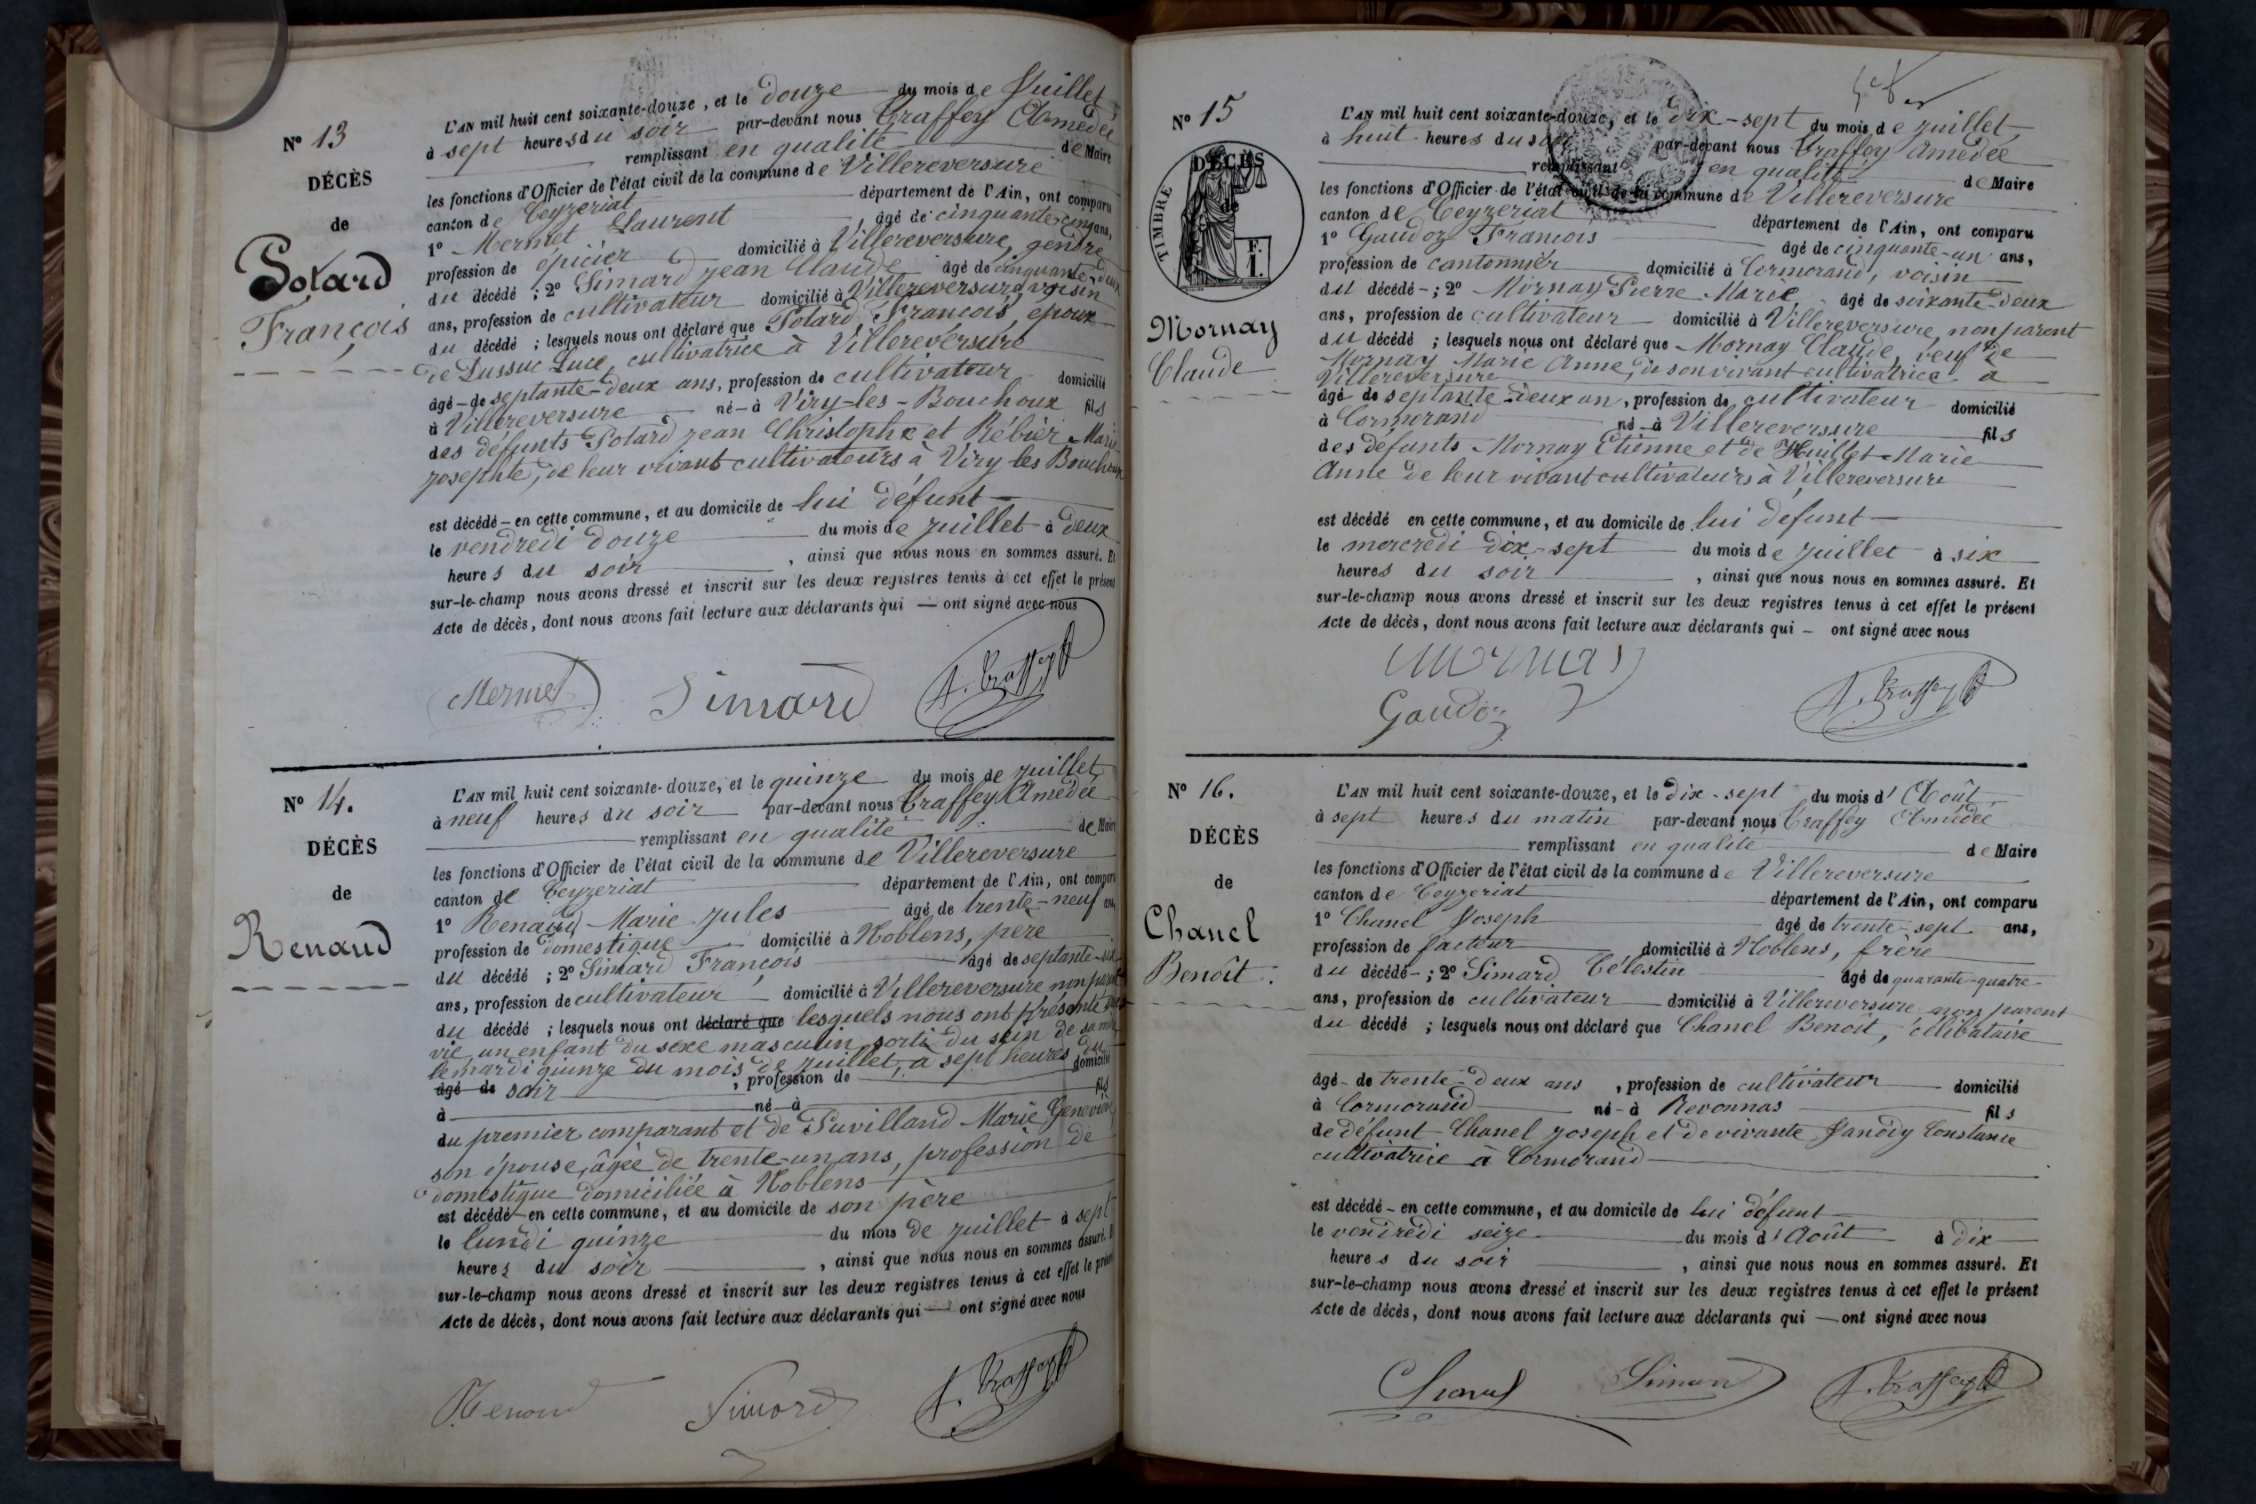 N° 13
DÉCÈS
de
Potard
François
L'AN mil huit cent soixante-douze, et le douze du mois de Juillet
à sept heures du soir par-devant nous Traffey Amédée
remplissant en qualité de Maire
les fonctions d'Officier de l'état civil de la commune de Villereversure
canton de Ceyzeriat département de l'Ain, ont comparu
1° Mermet Laurent, âgé de cinquante-cinq ans,
profession de épicier domicilié à Villereversure, gendre
du décédé ; 2° Simard jean Claude âgé de cinquante-deux
ans, profession de cultivateur domicilié à Villereversure voisin
du décédé ; lesquels nous ont déclaré que Potard François, époux
de Lussuc Luce, cultivatrice à Villereversure
âgé de septante-deux ans, profession de cultivateur domicilié
à Villereversure né à Viry-les-Bouchoux fils
des défunts Potard jean Christophe et Rébier Marie
josephte, de leur vivant cultivateurs à Viry les Bouchoux
est décédé en cette commune, et au domicile de lui défunt
le vendredi douze du mois de juillet à deux
heures du soir, ainsi que nous nous en sommes assuré. Et
sur-le-champ nous avons dressé et inscrit sur les deux registres tenus à cet effet le présent
Acte de décès, dont nous avons fait lecture aux déclarants qui — ont signé avec nous
Mermet Simard A. Traffey
N° 14.
DÉCÈS
de
Renaud
L'AN mil huit cent soixante-douze, et le quinze du mois de juillet
à neuf heures du soir par-devant nous Traffey Amédée
remplissant en qualité de Maire
les fonctions d'Officier de l'état civil de la commune de Villereversure
canton de Ceyzeriat département de l'Ain, ont comparu
1° Renaud Marie jules âgé de trente-neuf ans,
profession de domestique domicilié à Noblens, père
du décédé ; 2° Simard François âgé de septante-six
ans, profession de cultivateur domicilié à Villereversure non parent
du décédé ; lesquels nous ont déclaré que lesquels nous ont présenté sans
vie un enfant du sexe masculin sorti du sein de sa mère
le mardi quinze du mois de juillet, à sept heures du
âgé de soir, profession de domicilié
à né à fils
du premier comparant et de Suvilland Marie Geneviève
son épouse, âgée de trente-un ans, profession de
domestique domiciliée à Noblens
est décédé en cette commune, et au domicile de son père
le lundi quinze du mois de juillet à sept
heures du soir, ainsi que nous nous en sommes assuré. Et
sur-le-champ nous avons dressé et inscrit sur les deux registres tenus à cet effet le présent
Acte de décès, dont nous avons fait lecture aux déclarants qui — ont signé avec nous
Renaud Simard A. Traffey
N° 15
TIMBRE
DÉCÈS
de
F.
I.
Mornay
Claude
L'AN mil huit cent soixante-douze, et le dix-sept du mois de juillet
à huit heures du soir par-devant nous Traffey Amédée
remplissant en qualité de Maire
les fonctions d'Officier de l'état civil de la commune de Villereversure
canton de Ceyzeriat département de l'Ain, ont comparu
1° Gaudoz François âgé de cinquante-un ans,
profession de cantonnier domicilié à Cormorand, voisin
du décédé ; 2° Mornay Pierre Marie, âgé de soixante-deux
ans, profession de cultivateur domicilié à Villereversure, non parent
du décédé ; lesquels nous ont déclaré que Mornay Claude, veuf de
Mornay Marie Anne, de son vivant cultivatrice à
Villereversure
âgé de septante-deux an, profession de cultivateur domicilié
à Cormorand né à Villereversure fils
des défunts Mornay Etienne et de Huillet Marie
Anne de leur vivant cultivateurs à Villereversure
est décédé en cette commune, et au domicile de lui défunt
le mercredi dix-sept du mois de juillet à six
heures du soir, ainsi que nous nous en sommes assuré. Et
sur-le-champ nous avons dressé et inscrit sur les deux registres tenus à cet effet le présent
Acte de décès, dont nous avons fait lecture aux déclarants qui — ont signé avec nous
Mornay
Gaudoz A. Traffey
N° 16.
DÉCÈS
de
Chanel
Benoît.
L'AN mil huit cent soixante-douze, et le dix-sept du mois d'Août
à sept heures du matin par-devant nous Traffey Amédée
remplissant en qualité de Maire
les fonctions d'Officier de l'état civil de la commune de Villereversure
canton de Ceyzeriat département de l'Ain, ont comparu
1° Chanel Joseph âgé de trente-sept ans,
profession de facteur domicilié à Noblens, frère
du décédé ; 2° Simard Célestin âgé de quarante-quatre
ans, profession de cultivateur domicilié à Villereversure, non parent
du décédé ; lesquels nous ont déclaré que Chanel Benoît, célibataire
âgé de trente-deux ans, profession de cultivateur domicilié
à Cormorand né à Revonnas fils
de défunt Chanel joseph et de vivante Janody Constance
cultivatrice à Cormorand
est décédé en cette commune, et au domicile de lui défunt
le vendredi seize du mois d'Août à dix
heures du soir, ainsi que nous nous en sommes assuré. Et
sur-le-champ nous avons dressé et inscrit sur les deux registres tenus à cet effet le présent
Acte de décès, dont nous avons fait lecture aux déclarants qui — ont signé avec nous
Chanel Simard A. Traffey